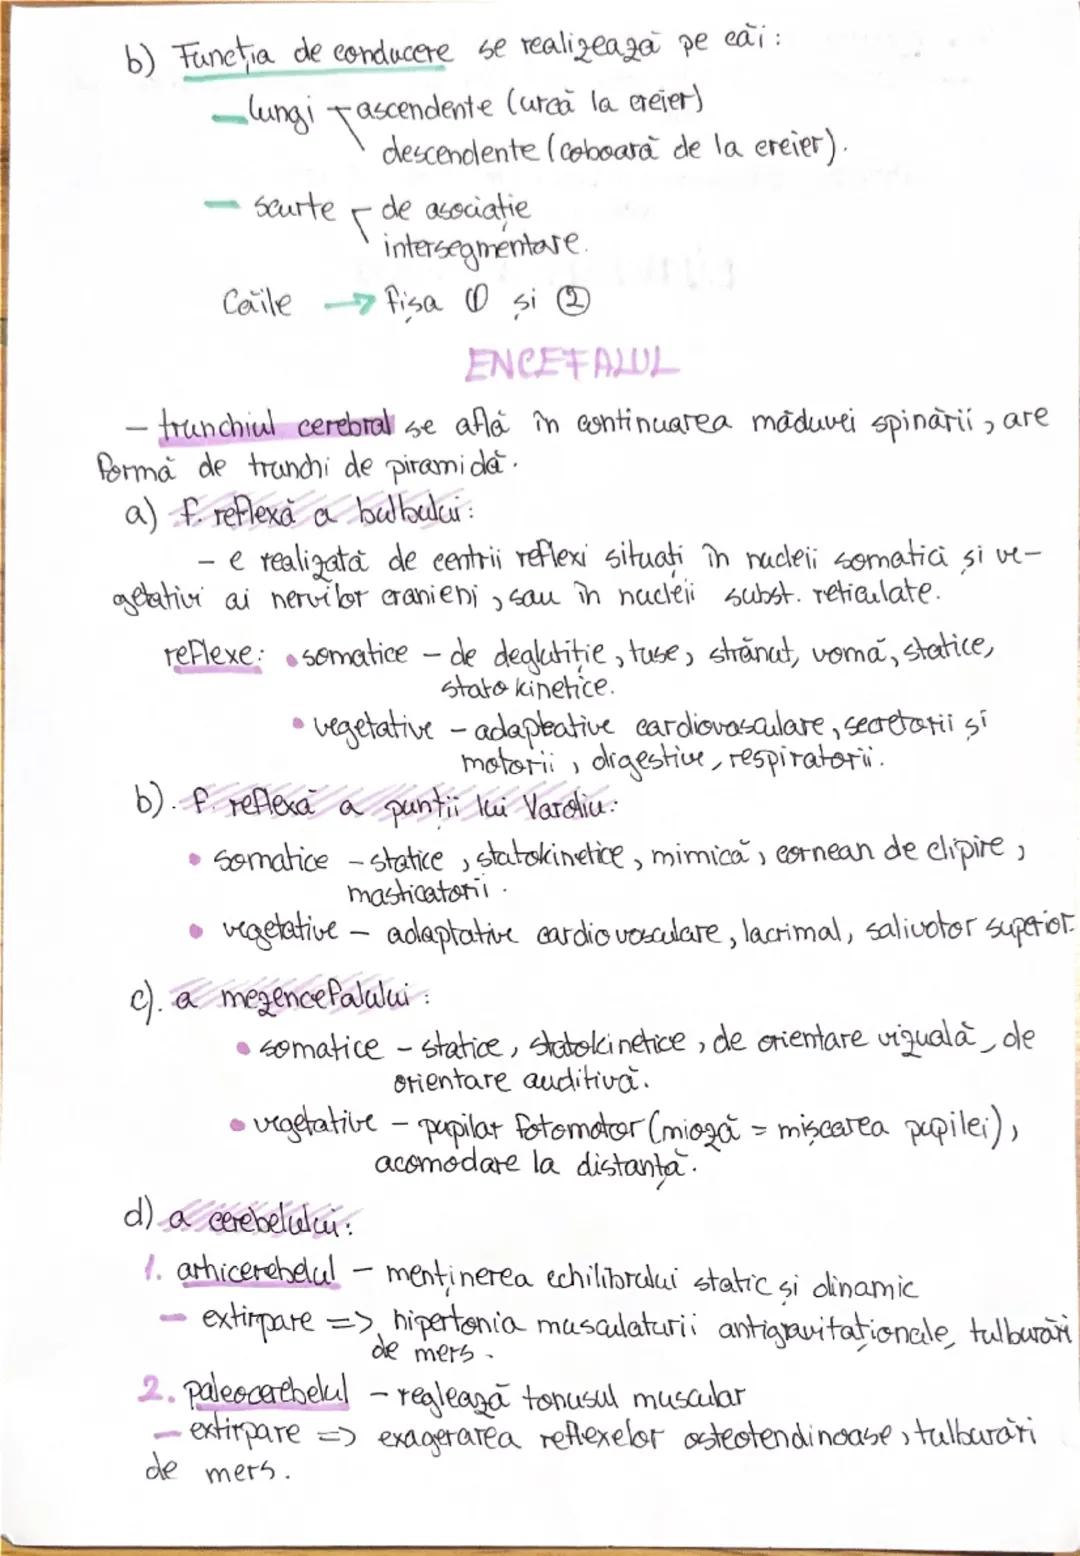 b) Funcția de conducere se realizează pe căi:
– lungi – ascendente (urcă la creier)
descendente (coboară de la creier).
– scurte – de asociație
intersegmentare.
Căile → fișa ① și ②
ENCEFALUL
– trunchiul cerebral se află în continuarea măduvei spinării, are
formă de trunchi de piramidă.
a) f. reflexă a bulbului:
– e realizată de centrii reflexi situați în nucleii somatici și ve-
getativi ai nervilor cranieni, sau în nucleii subst. reticulate.
reflexe: • somatice – de deglutiție, tuse, strănut, vomă, statice,
statokinetice.
• vegetative – adaptative cardiovasculare, secretorii și
motorii, digestive, respiratorii.
b). f. reflexă a punții lui Varoliu:
• somatice – statice, statokinetice, mimică, cornean de clipire,
masticatorii.
• vegetative – adaptative cardiovasculare, lacrimal, salivator superior.
c). a mezencefalului:
• somatice – statice, statokinetice, de orientare vizuală, de
orientare auditivă.
• vegetative – pupilar fotomotor (mioză = mișcarea pupilei),
acomodare la distanță.
d) a cerebelului:
1. arhicerebelul – menținerea echilibrului static și dinamic
– extirpare => hipertonia musculaturii antigravitaționale, tulburări
de mers.
2. paleocerebelul – reglează tonusul muscular
– extirpare => exagerarea reflexelor osteotendinoase, tulburări
de mers.